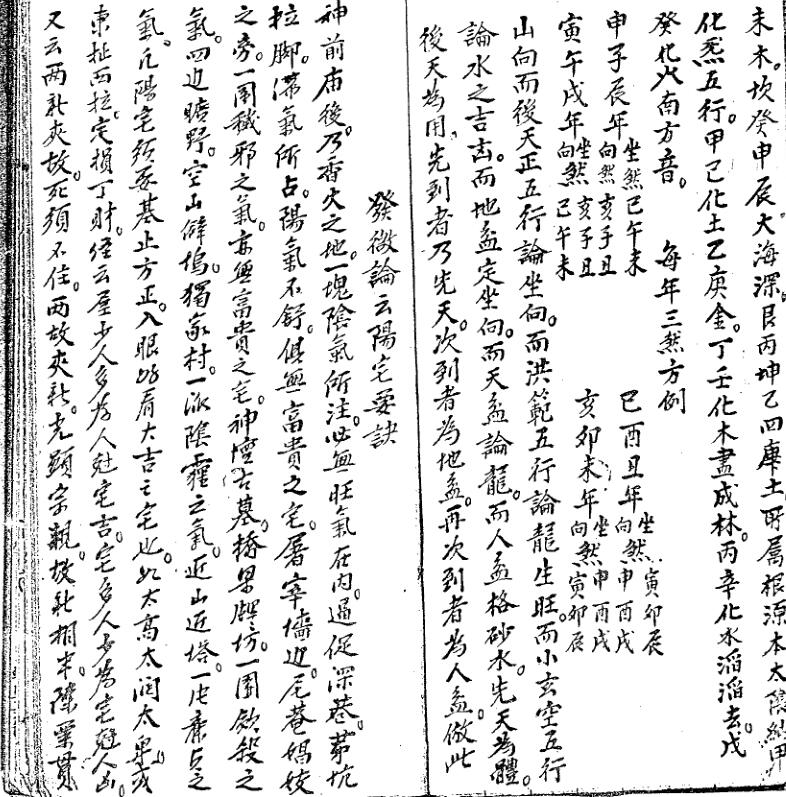 未木。坎癸申辰大海深。艮丙坤乙四庫土。所屬根源本太陰納甲
化炁五行。甲己化土乙庚金。丁壬化木盡成林。丙辛化水滔滔去。戊
癸化火南方音。　每年三煞方例
申子辰年坐煞巳午未向煞亥子丑　巳酉丑年坐煞寅卯辰向煞申酉戌
寅午戌年坐煞亥子丑向煞巳午未　亥卯未年坐煞申酉戌向煞寅卯辰
山向而後天正五行論坐向。而洪範五行論龍生旺。而小玄空五行
論水之吉凶。而地盆定坐向。而天盆論龍。而人盆格砂水。先天為體。
後天為用。先到者乃先天。次到者為地盆。再次到者為人盆。倣此
發微論云陽宅要訣
神前庙後。乃香火之地。一塊陰氣所注。必無旺氣在内。逼促深巷。茅坑
拉脚。滯氣所占。陽氣不舒。俱無富貴之宅。屠宰墻边。尼菴娼妓
之旁。一團穢邪之氣。亦無富貴之宅。神壇古墓。橋梁牌坊。一團飲殺之
氣。四边曠野。空山僻塢。獨家村。一派陰霾之氣。近山近塔。一片廉貞之
氣。凡陽宅須要基止方正。入眼好看大吉之宅也。如太高太阔太卑或
東扯西拉。定損丁財。經云屋少人多為人尅宅吉。宅多人少為宅尅人凶。
又云两新夾故。死須不住。两故夾新。光顯宗親。故新相半。陳粟貫